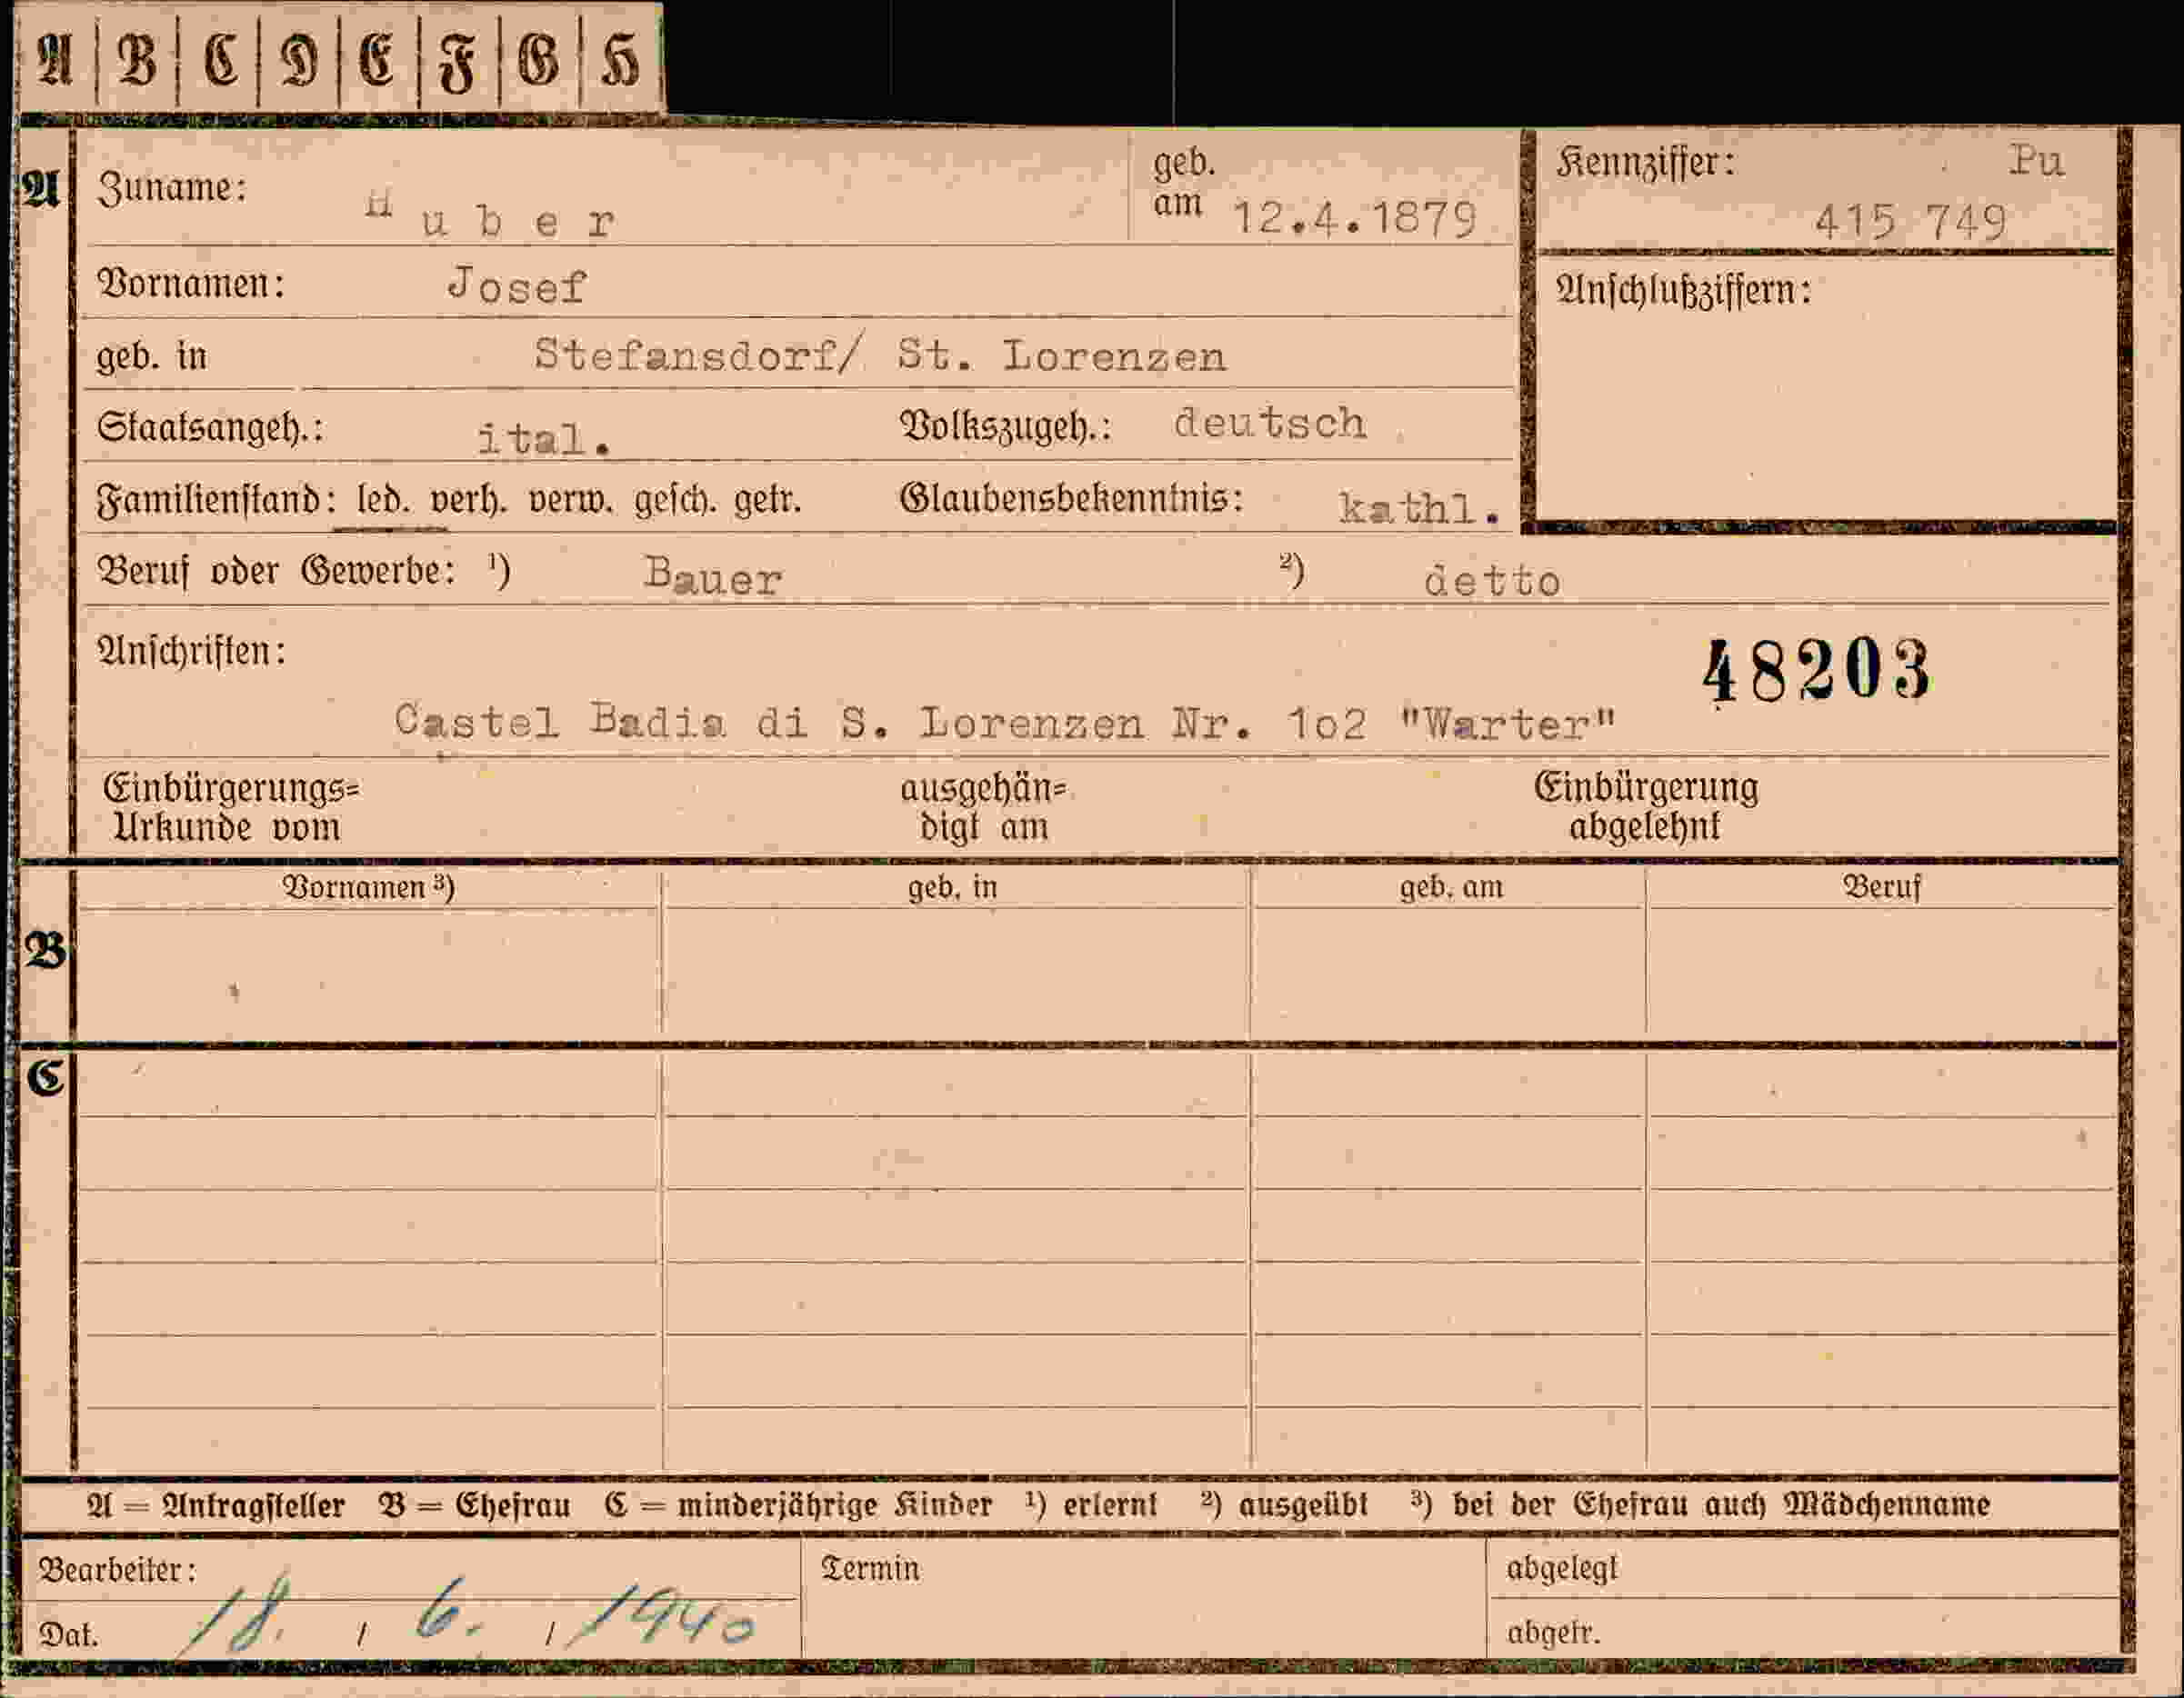 A B C D E F G H
A Zuname: H u b e r geb. am 12.4.1879
Kennziffer: Pu
415 749
Vornamen: Josef
Anschlußziffern:
geb. in Stefansdorf/ St. Lorenzen
Staatsangeh.: ital. Volkszugeh.: deutsch
Familienstand: led. verh. verw. gesch. getr. Glaubensbekenntnis: kathl.
Beruf oder Gewerbe: ¹) Bauer ²) detto
Anschriften: 48203
Castel Badia di S. Lorenzen Nr. 1o2 "Warter"
Einbürgerungs= ausgehän= Einbürgerung
Urkunde vom digt am abgelehnt
Vornamen ³) geb. in geb. am Beruf
B
C
A = Antragsteller B = Ehefrau C = minderjährige Kinder ¹) erlernt ²) ausgeübt ³) bei der Ehefrau auch Mädchenname
Bearbeiter: Termin abgelegt
Dat. 18. / 6. / 1940 abgetr.